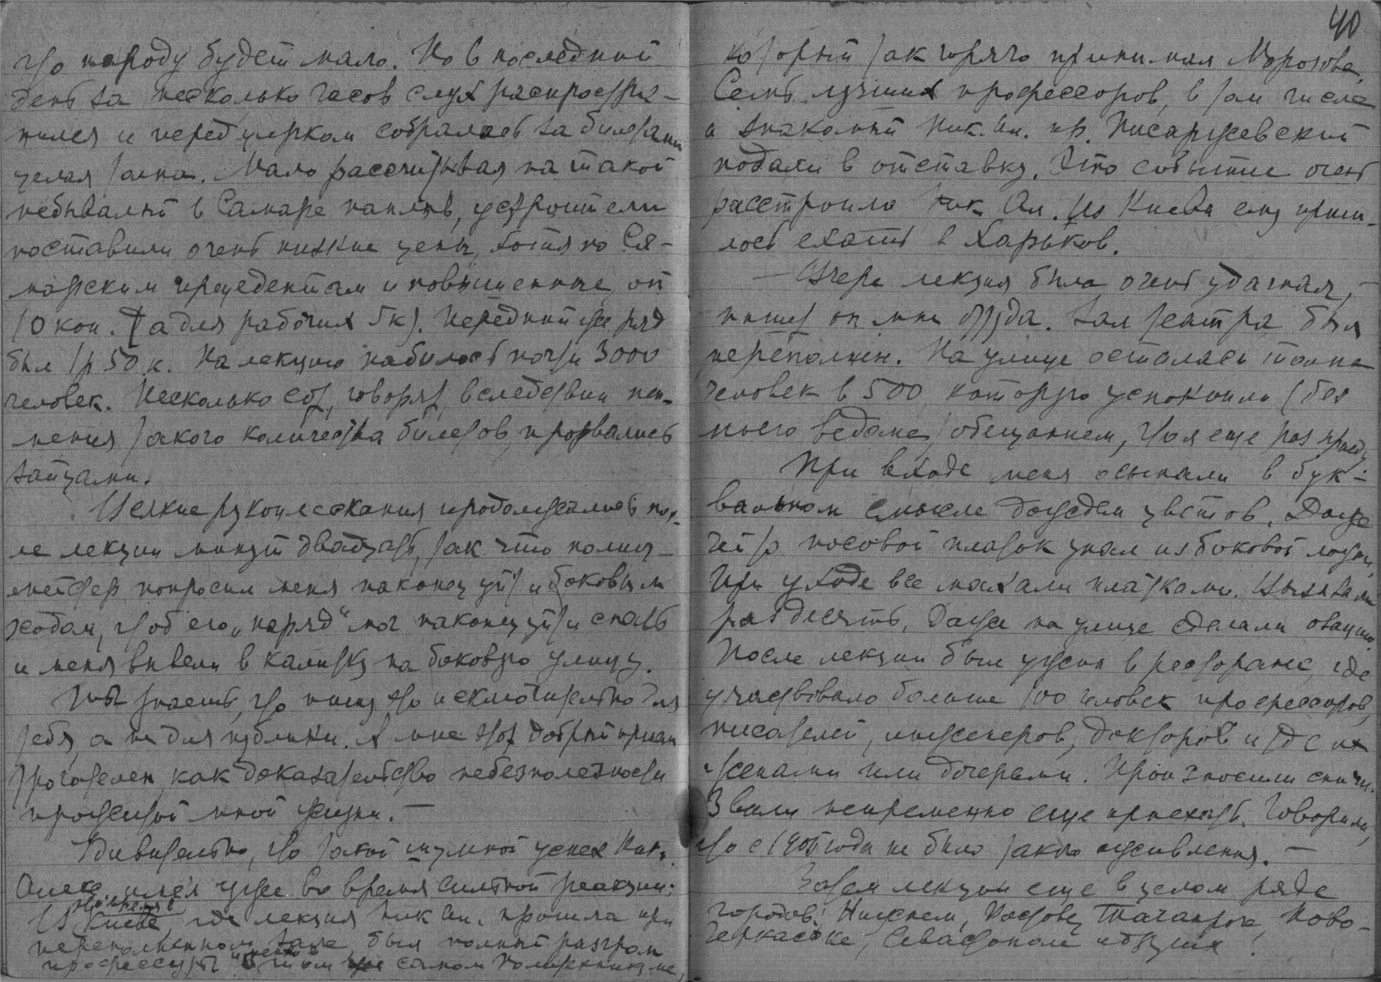 что народу будет мало. Но в последний
день за несколько часов слух распростра-
нился и перед цирком собралась за билетами
целая толпа. Мало рассчитывая на такой
небывалый в Самаре наплыв, устроители
поставили очень низкие цены, хотя по Са-
марским прецедентам и повышенные, от
10 коп. (а для рабочих 5 к). Передний же ряд
был 1 р 50 к. На лекцию набилось почти 3000
человек. Несколько сот, говорят, вследствии
такого количества билетов, прорвались
зайцами.
Целкие рукоплескания продолжались пос-
ле лекции минут двадцать, так что полиц-
мейстер попросил меня наконец уйти боковым
ходом, чтоб его „наряд" мог наконец уйти спать
и меня вывели в калитку на боковую улицу.
Ты знаешь, что пишу это исключительно для
тебя, а не для публики. А мне этот добрый прием
трогателен, как доказательство небесполезности
прожитой мной жизни. —
Удивительно, что такой шумной успех Ник.
Алекс. имел уже во время сильной реакции.
Киеве где лекция Ник Ал. прошла при
переполненном зале, был полный разгром
профессуры в том же самом Политехникуме,
40
который так горячо принимал Морозова.
Семь лучших профессоров, в том числе
и знакомый Ник. Ал. пр. Писаржевский
подали в отставку. Это событие очень
расстроило Ник Ал. Из Киева ему приш-
лось ехать в Харьков.
— Вчера лекция была очень удачная, —
пишет он мне оттуда. Зал театра был
переполнен. На улице осталась толпа
человек в 500, которую успокоили (без
моего ведома) обещанием, что я еще раз приеду
При входе меня осыпали в бук-
вальном смысле дождем цветов. Даже
чей то носовой платок упал из боковой ложи,
При уходе все махали платками. Вызывали
раз десять. Даже на улице сделали овацию.
После лекции был ужин в ресторане, где
участвовало больше 100 человек профессоров,
писателей, инженеров, докторов и тд с их
женами или дочерьми. Произносили спичи.
Звали непременно еще приехать. Говорили,
что с 1905 года не было такого оживления. —
Затем лекции еще в целом ряде
городов: Нижнем, Ростове, Таганроге, Ново-
черкасске, Севастополе и других!